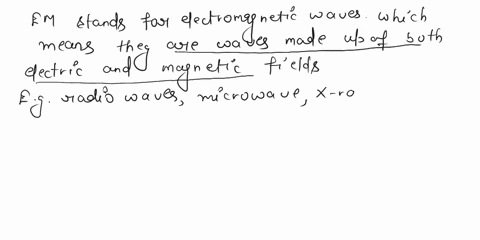 EM stands for electromagnetic waves. which
means they are waves made up of both
electric and magnetic fields
E.g. radio waves, microwave, X-ra